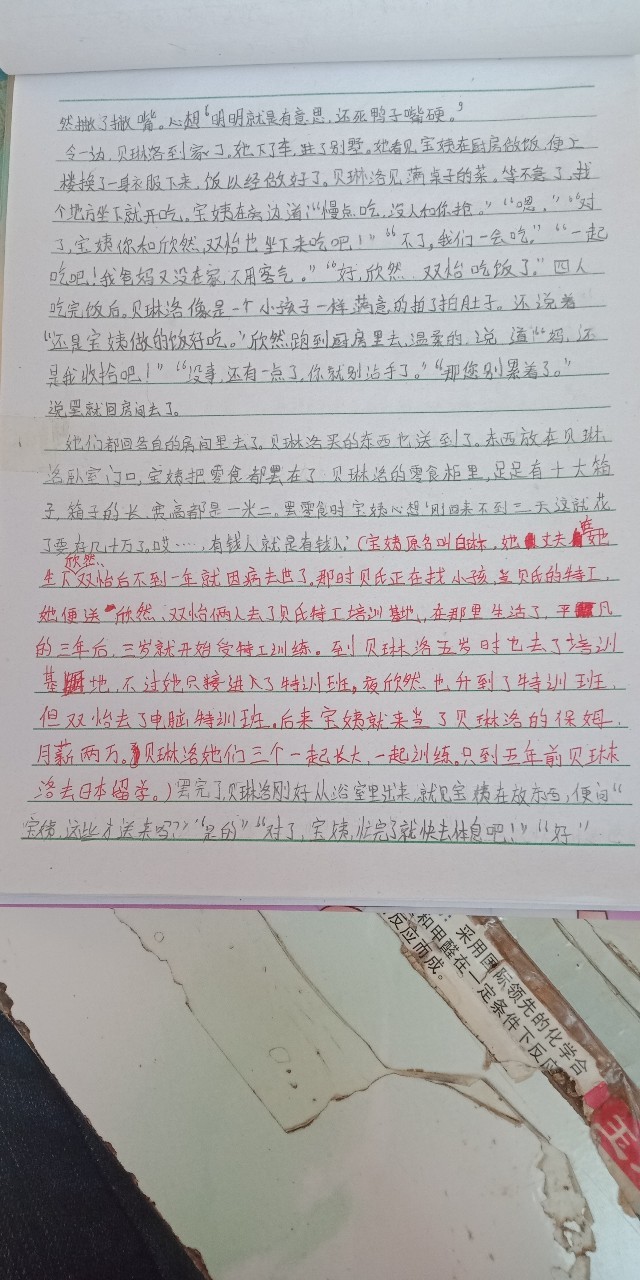 然撇了撇嘴。心想“明明就是有意思,还死鸭子嘴硬。”
令一边,贝琳洛到家了,她下了车,进了别墅。她看见宝姨在厨房做饭,便上
楼换了一身衣服下来,饭以经做好了。贝琳洛见满桌子的菜。等不急了,找
个地方坐下就开吃。宝姨在旁边道:“慢点吃,没人和你抢。”“嗯,”“对
了,宝姨你和欣然,双怡也坐下来吃吧!”“不了,我们一会吃。”“一起
吃吧!我爸妈又没在家,不用客气。”“好,欣然、双怡吃饭了。”四人
吃完饭后。贝琳洛像是一个小孩子一样满意的拍了拍肚子。还说着
“还是宝姨做的饭好吃。”欣然跑到厨房里去,温柔的说道:“妈,还
是我收拾吧!”“没事,还有一点了,你就别沾手了。”“那您别累着了。”
说罢就回房间去了。
她们都回各自的房间里去了。贝琳洛买的东西也送到了。东西放在贝琳
洛卧室门口,宝姨把零食都罢在了贝琳洛的零食柜里,足足有十大箱
子,箱子的长、宽高都是一米二。罢零食时宝姨心想‘刚回来不到三天这就花
了要有几十万了。哎……,有钱人就是有钱人’(宝姨原名叫白琳,她丈夫在她
欣然、
生下双怡后不到一年就因病去世了。那时贝氏正在找小孩,当贝氏的特工,
她便送欣然、双怡俩人去了贝氏特工培训基地,在那里生活了,平凡
的三年后,三岁就开始受特工训练。到贝琳洛五岁时也去了培训
基地,不过她只接进入了特训班。夜欣然也升到了特训班,
但双怡去了电脑特训班。后来宝姨就来当了贝琳洛的保姆,
月薪两万。贝琳洛她们三个一起长大,一起训练。只到五年前贝琳
洛去日本留学。)罢完了贝琳洛刚好从浴室里出来,就见宝姨在放东西,便问“
宝姨,这些才送来吗?”“是的”“对了,宝姨,忙完了就快去休息吧!”“好”
采用国际领先的化学合
和甲醛在一定条件下反应
反应而成。